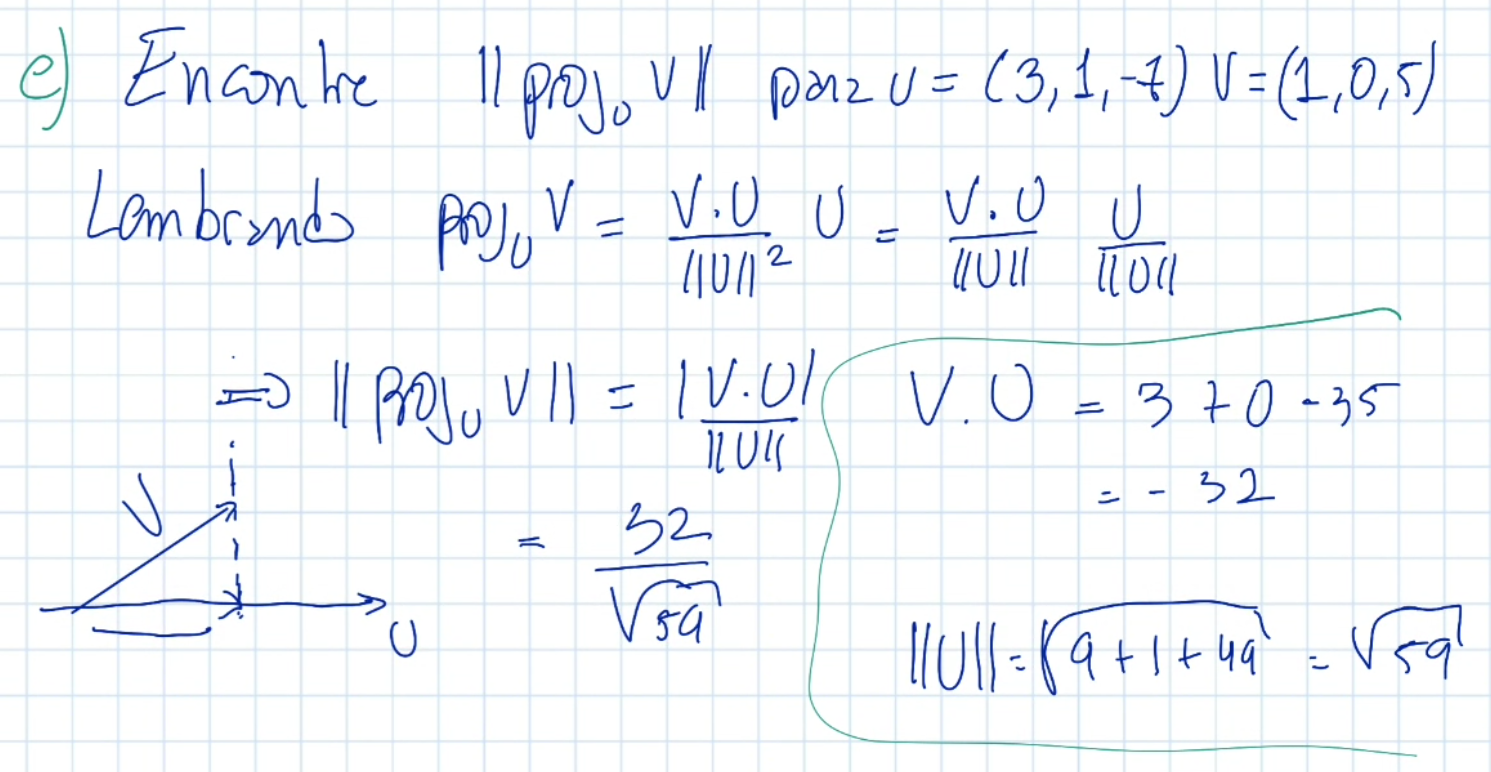 e) Encontre ||proj_U V|| para U = (3, 1, -7) V = (1, 0, 5)
Lembrando proj_U V = V.U / ||U||² U = V.U / ||U|| U / ||U||
=> ||proj_U V|| = |V.U| / ||U||
= 32 / √59
V
U
V.U = 3 + 0 - 35
= - 32
||U|| = √(9 + 1 + 49) = √59